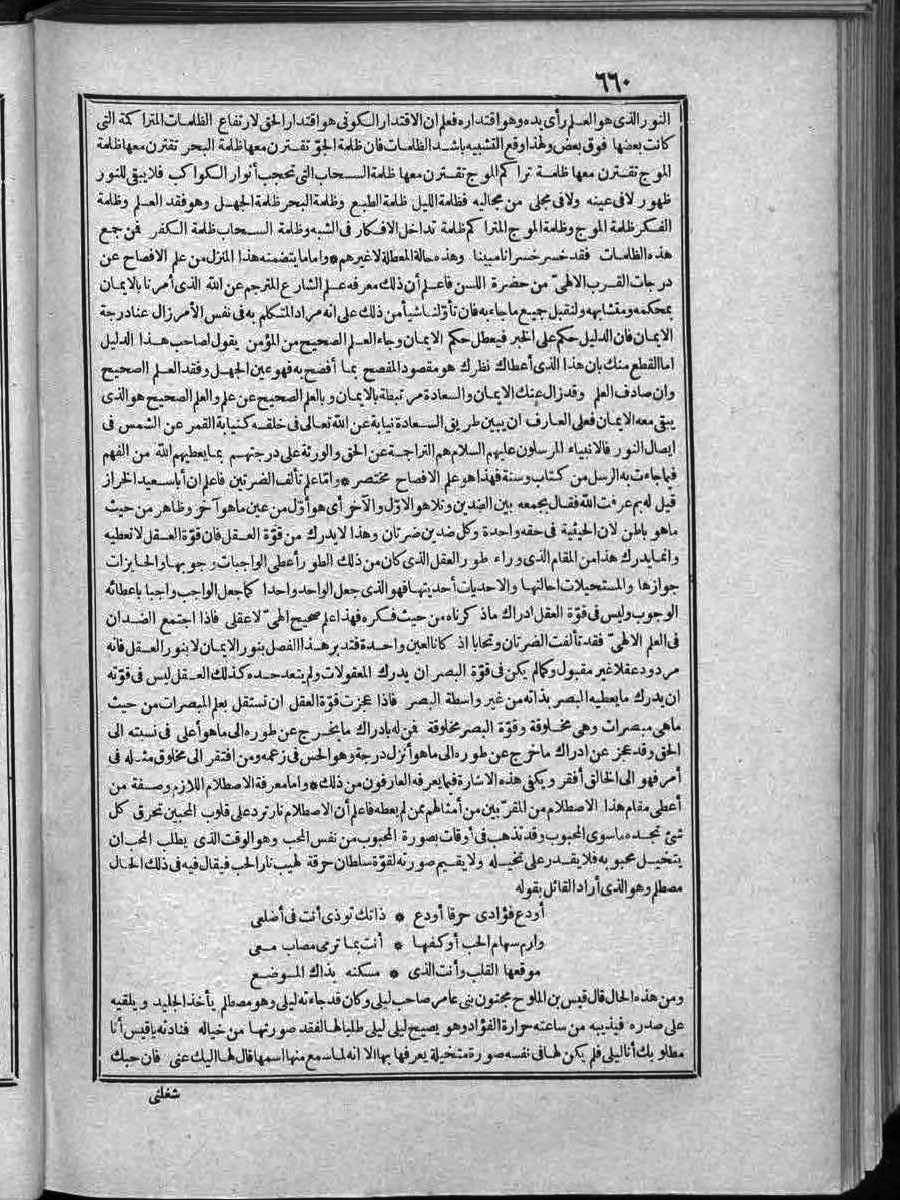 ٦٦٠
النور الذى هو العلم رأى يده وهو اقتداره فعلم ان الاقتدار الكونى هو اقتدار الحق لارتفاع الظلمات المتراكمة التى
كانت بعضها فوق بعض ولهذا وقع التشبيه باشد الظلمات فان ظلمة الجوّ تقترن معها ظلمة البحر تقترن معها ظلمة
الموج تقترن معها ظلمة تراكم الموج تقترن معها ظلمة السحاب التى تحجب أنوار الكواكب فلا يبقى للنور
ظهور لا فى عينه ولا فى مجلى من مجاليه فظلمة الليل ظلمة الطبع وظلمة البحر ظلمة الجهل وهو فقد العلم وظلمة
الفكر ظلمة الموج وظلمة الموج المتراكم ظلمة تداخل الافكار فى الشبه وظلمة السحاب ظلمة الكفر فمن جمع
هذه الظلمات فقد خسر خسرانا مبينا وهذه حالة المعطلة لا غيرهم * واما ما يتضمنه هذا المنزل من علم الافصاح عن
درجات القرب الالهىّ من حضرة اللسن فاعلم أن ذلك معرفة علم الشارع المترجم عن الله الذى أمرنا بالايمان
بمحكمه ومتشابهه ولنقبل جميع ما جاء به فان تأوّلنا شيأ من ذلك على انه مراد المتكلم به فى نفس الأمر زال عنا درجة
الايمان فان الدليل حكم على الخبر فيعطل حكم الايمان وجاء العلم الصحيح من المؤمن يقول لصاحب هذا الدليل
اما القطع منك بان هذا الذى أعطاك نظرك هو مقصود المفصح بما أفصح به فهو عين الجهل وفقد العلم الصحيح
وان صادف العلم وقد زال عنك الايمان والسعادة مرتبطة بالايمان وبالعلم الصحيح عن علم والعلم الصحيح هو الذى
يبقى معه الايمان فعلى العارف ان يبين طريق السعادة نيابة عن الله تعالى فى خلقه كنيابة القمر عن الشمس فى
ايصال النور فالانبياء المرسلون عليهم السلام هم التراجمة عن الحق والورثة على درجتهم بما يعطيهم الله من الفهم
فيما جاءت به الرسل من كتاب وسنة فهذا هو علم الافصاح مختصر * وامّا علم تألف الضرتين فاعلم ان أبا سعيد الخراز
قيل له بم عرفت الله فقال بجمعه بين الضدين وتلا هو الاوّل والآخر أى هو أوّل من عين ما هو آخر وظاهر من حيث
ما هو باطن لان الحيثية فى حقه واحدة وكل ضدين ضرتان وهذا لا يدرك من قوّة العقل فان قوّة العقل لا تعطيه
وانما يدرك هذا من المقام الذى وراء طور العقل الذى كان من ذلك الطور أعطى الواجبات وجوبها والجايزات
جوازها والمستحيلات احالتها والاحديات أحديتها فهو الذى جعل الواحد واحدا كما جعل الواجب واجبا باعطائه
الوجوب وليس فى قوّة العقل ادراك ما ذكرناه من حيث فكره فهذا علم صحيح الهىّ لا عقلى فاذا اجتمع الضدان
فى العلم الالهىّ فقد تألفت الضرتان وتحابا اذ كانا لعين واحدة فتدبر هذا الفصل بنور الايمان لا بنور العقل فانه
مردود عقلا غير مقبول وكما لم يكن فى قوّة البصر ان يدرك المعقولات ولم يتعد حده كذلك العقل ليس فى قوّته
ان يدرك ما يعطيه البصر بذاته من غير واسطة البصر فاذا عجزت قوّة العقل ان تستقل بعلم المبصرات من حيث
ما هى مبصرات وهى مخلوقة وقوّة البصر مخلوقة فمن له بادراك ما يخرج عن طوره الى ما هو أعلى فى نسبته الى
الحق وقد عجز عن ادراك ما خرج عن طوره الى ما هو أنزل درجة وهو الحس فى زعمه ومن افتقر الى مخلوق مثله فى
أمر فهو الى الخالق أفقر ويكفى هذه الاشارة فيما يعرفه العارفون من ذلك * واما معرفة الاصطلام اللازم وصفة من
أعطى مقام هذا الاصطلام من المقرّبين من أمثالهم ممن لم يعطه فاعلم أن الاصطلام نار ترد على قلوب المحبين تحرق كل
شئ تجده ما سوى المحبوب وقد تذهب فى أوقات بصورة المحبوب من نفس المحب وهو الوقت الذى يطلب المحب ان
يتخيل محبوبه فلا يقدر على تخيله ولا يقيم صورته لقوّة سلطان حرقة لهيب نار الحب فيقال فيه فى ذلك الحال
مصطلم وهو الذى أراد القائل بقوله
أودع فؤادى حرقا أودع * ذاتك توذى أنت فى أضلعى
وارم سهام الحب أو كفها * أنت بما ترمى مصاب معى
موقعها القلب وأنت الذى * مسكنه بذاك الموضع
ومن هذه الحال قال قيس بن الملوح مجنون بنى عامر صاحب ليلى وكان قد جاءته ليلى وهو مصطلم يأخذ الجليد ويلقيه
على صدره فيذيبه من ساعته حرارة الفؤاد وهو يصيح ليلى ليلى طلبا لها لفقد صورتها من خياله فنادته يا قيس أنا
مطلوبك أنا ليلى فلم يكن لها فى نفسه صورة متخيلة يعرفها بها الا انه لما سمع منها اسمها قال لها اليك عنى فان حبك
شغلنى